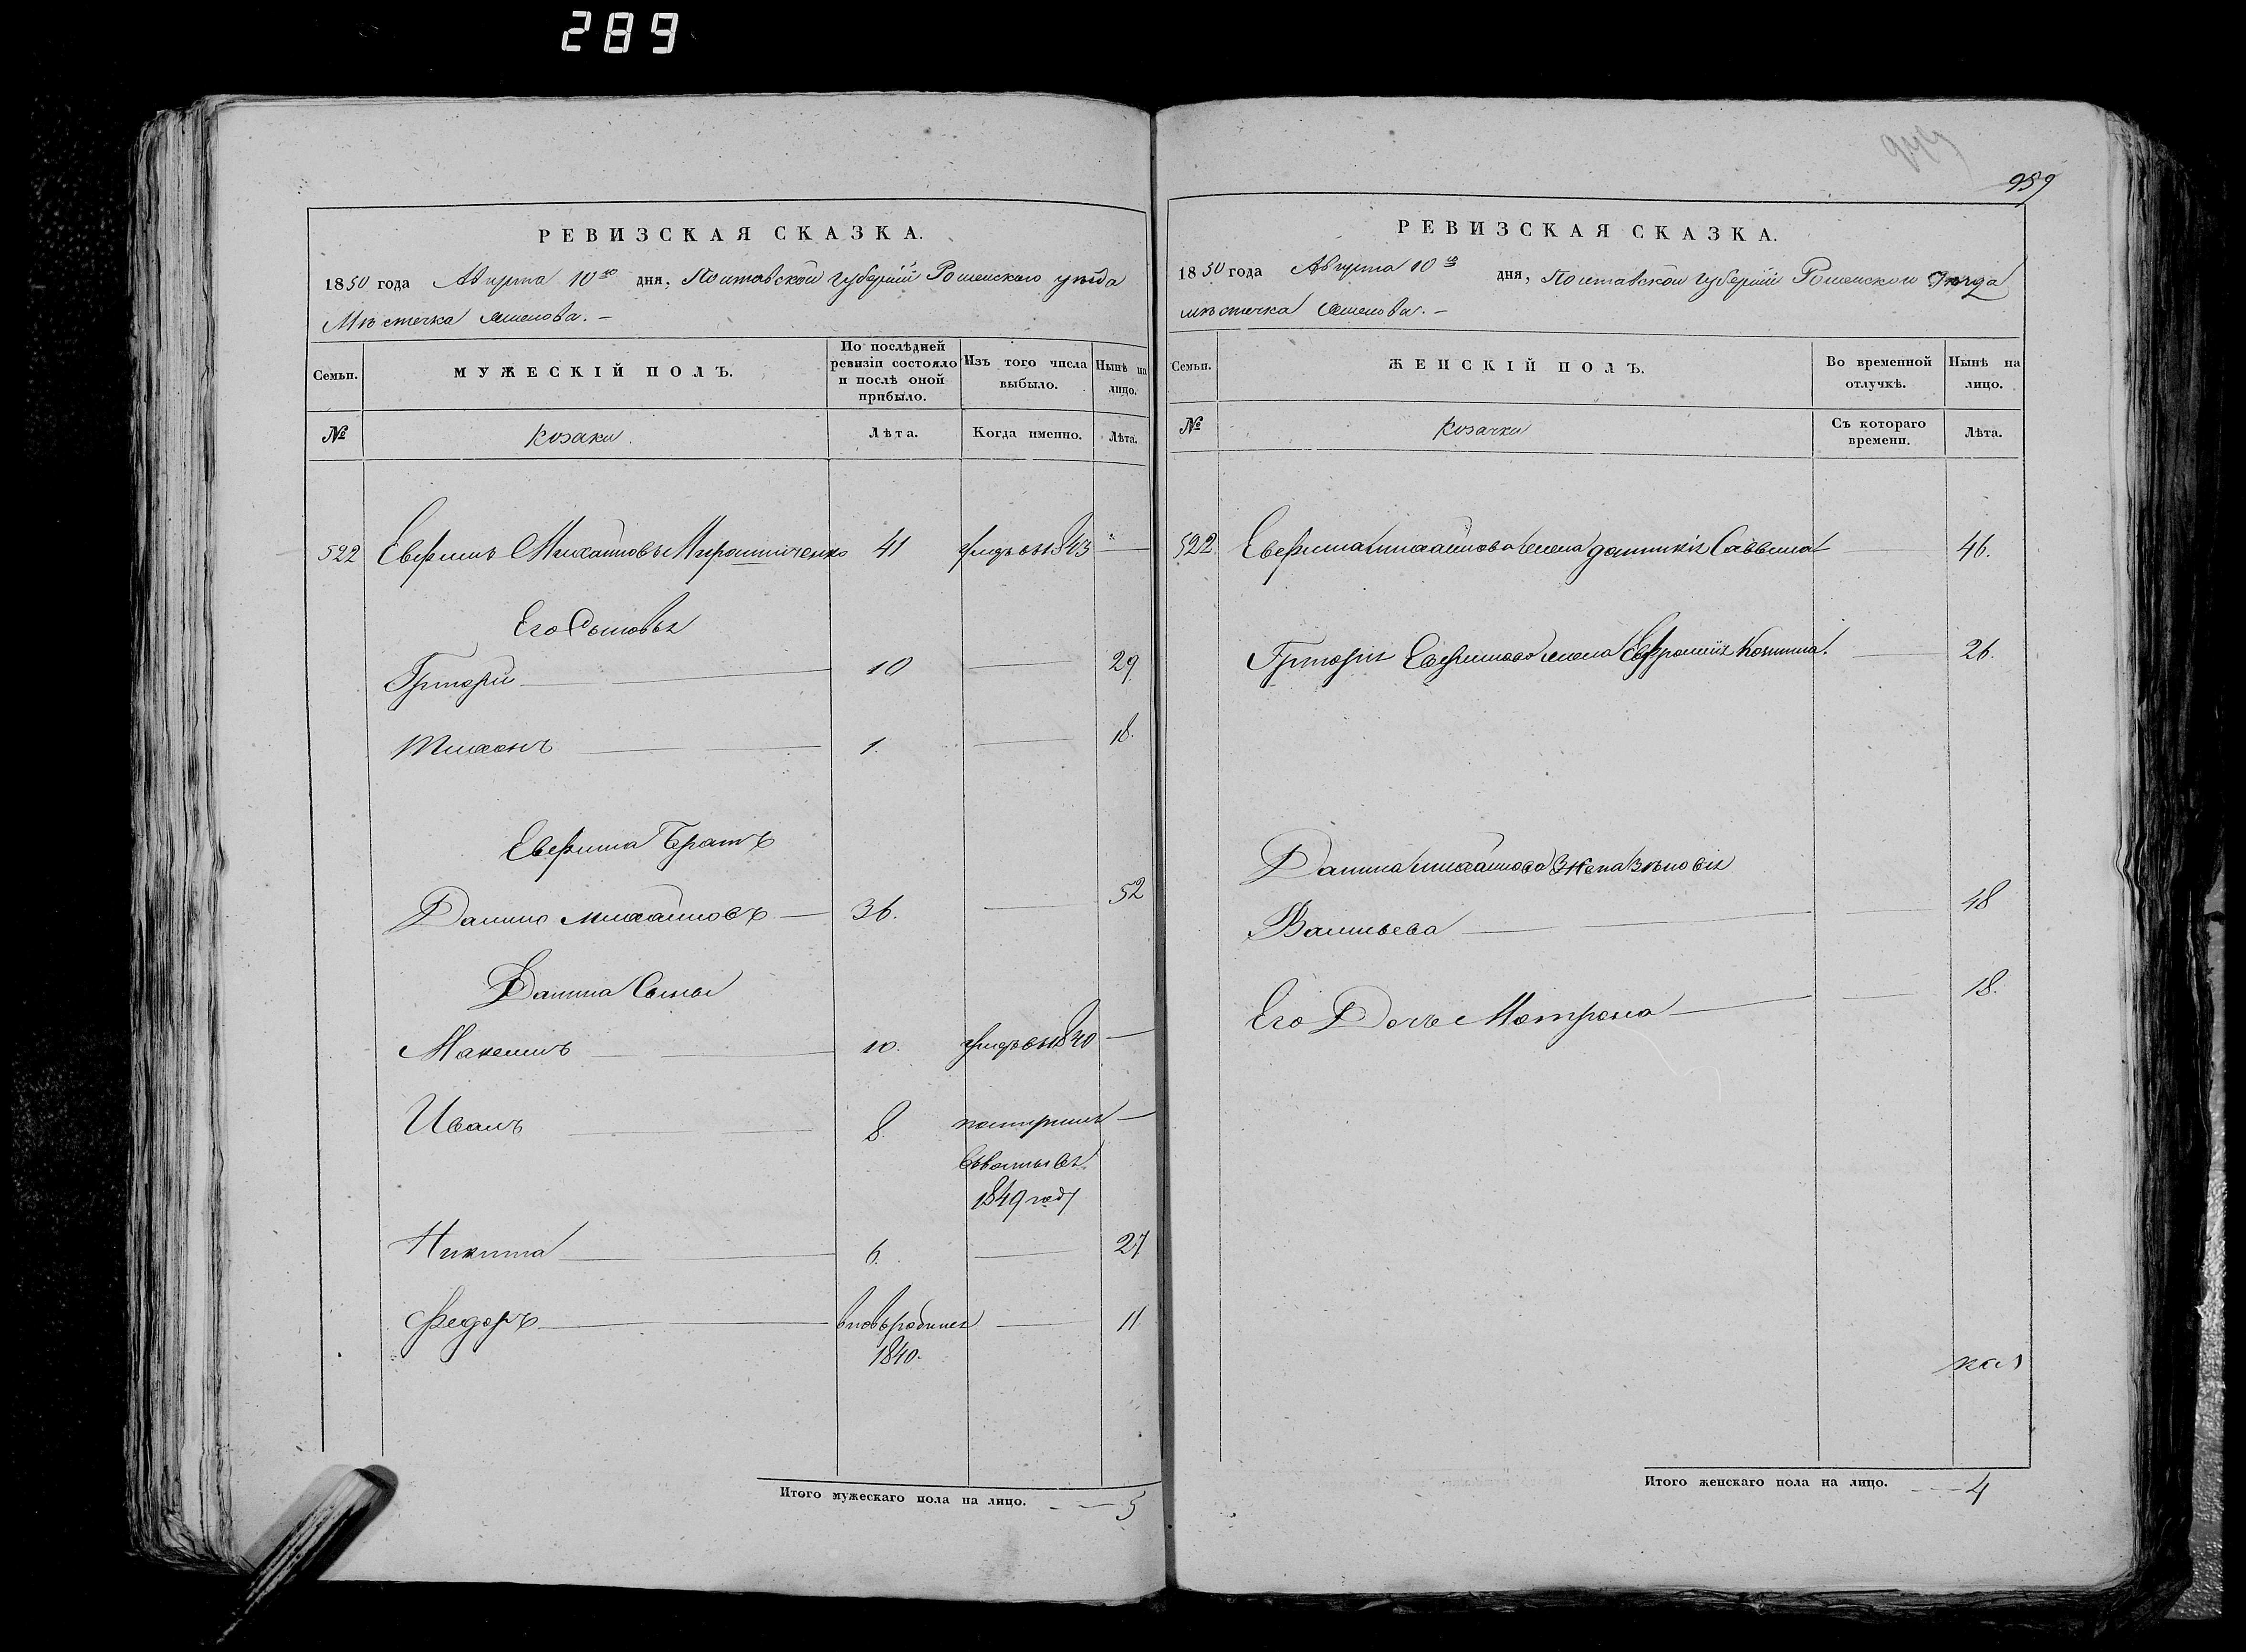 289
959
РЕВИЗСКАЯ СКАЗКА.
1850 года Августа 10го дня, Полтавской губерніи Роменскаго уѣзда
Мѣстечка Смелова. —
Семьи. МУЖЕСКІЙ ПОЛЪ. По послѣдней ревизіи состояло и послѣ оной прибыло. Изъ того числа выбыло. Нынѣ на лицо.
№ Козаки. Лѣта. Когда именно. Лѣта.
522 Евфимъ Михайловъ Мирошниченко 41 умеръ въ 1843 —
Его Сыновья
Григорій 10 — 29
Тихонъ 1. — 18.
Евфима Братъ
Данило Михайловъ — 36. — 52
Данила Сыны
Максимъ 10. умеръ въ 1840 —
Иванъ 8. —
1849 году
Никита 6. — 27
Федоръ вновь родился — 11
1840.
Итого мужескаго пола на лицо. — 5
РЕВИЗСКАЯ СКАЗКА.
1850 года Августа 10го дня, Полтавской губерніи Роменскаго уѣзда
мѣстечка Смелова. —
Семьи. ЖЕНСКІЙ ПОЛЪ. Во временной отлучкѣ. Нынѣ на лицо.
№ Козачки Съ котораго времени. Лѣта.
522. Евфима Михайлова жена Саввина — 46.
Григорія Евфимова жена Евфросинія — 26.
Данила Михайлова жена Зѣновія
Васильева — 48
Его Дочь Матрона — 18.
Итого женскаго пола на лицо. — 4